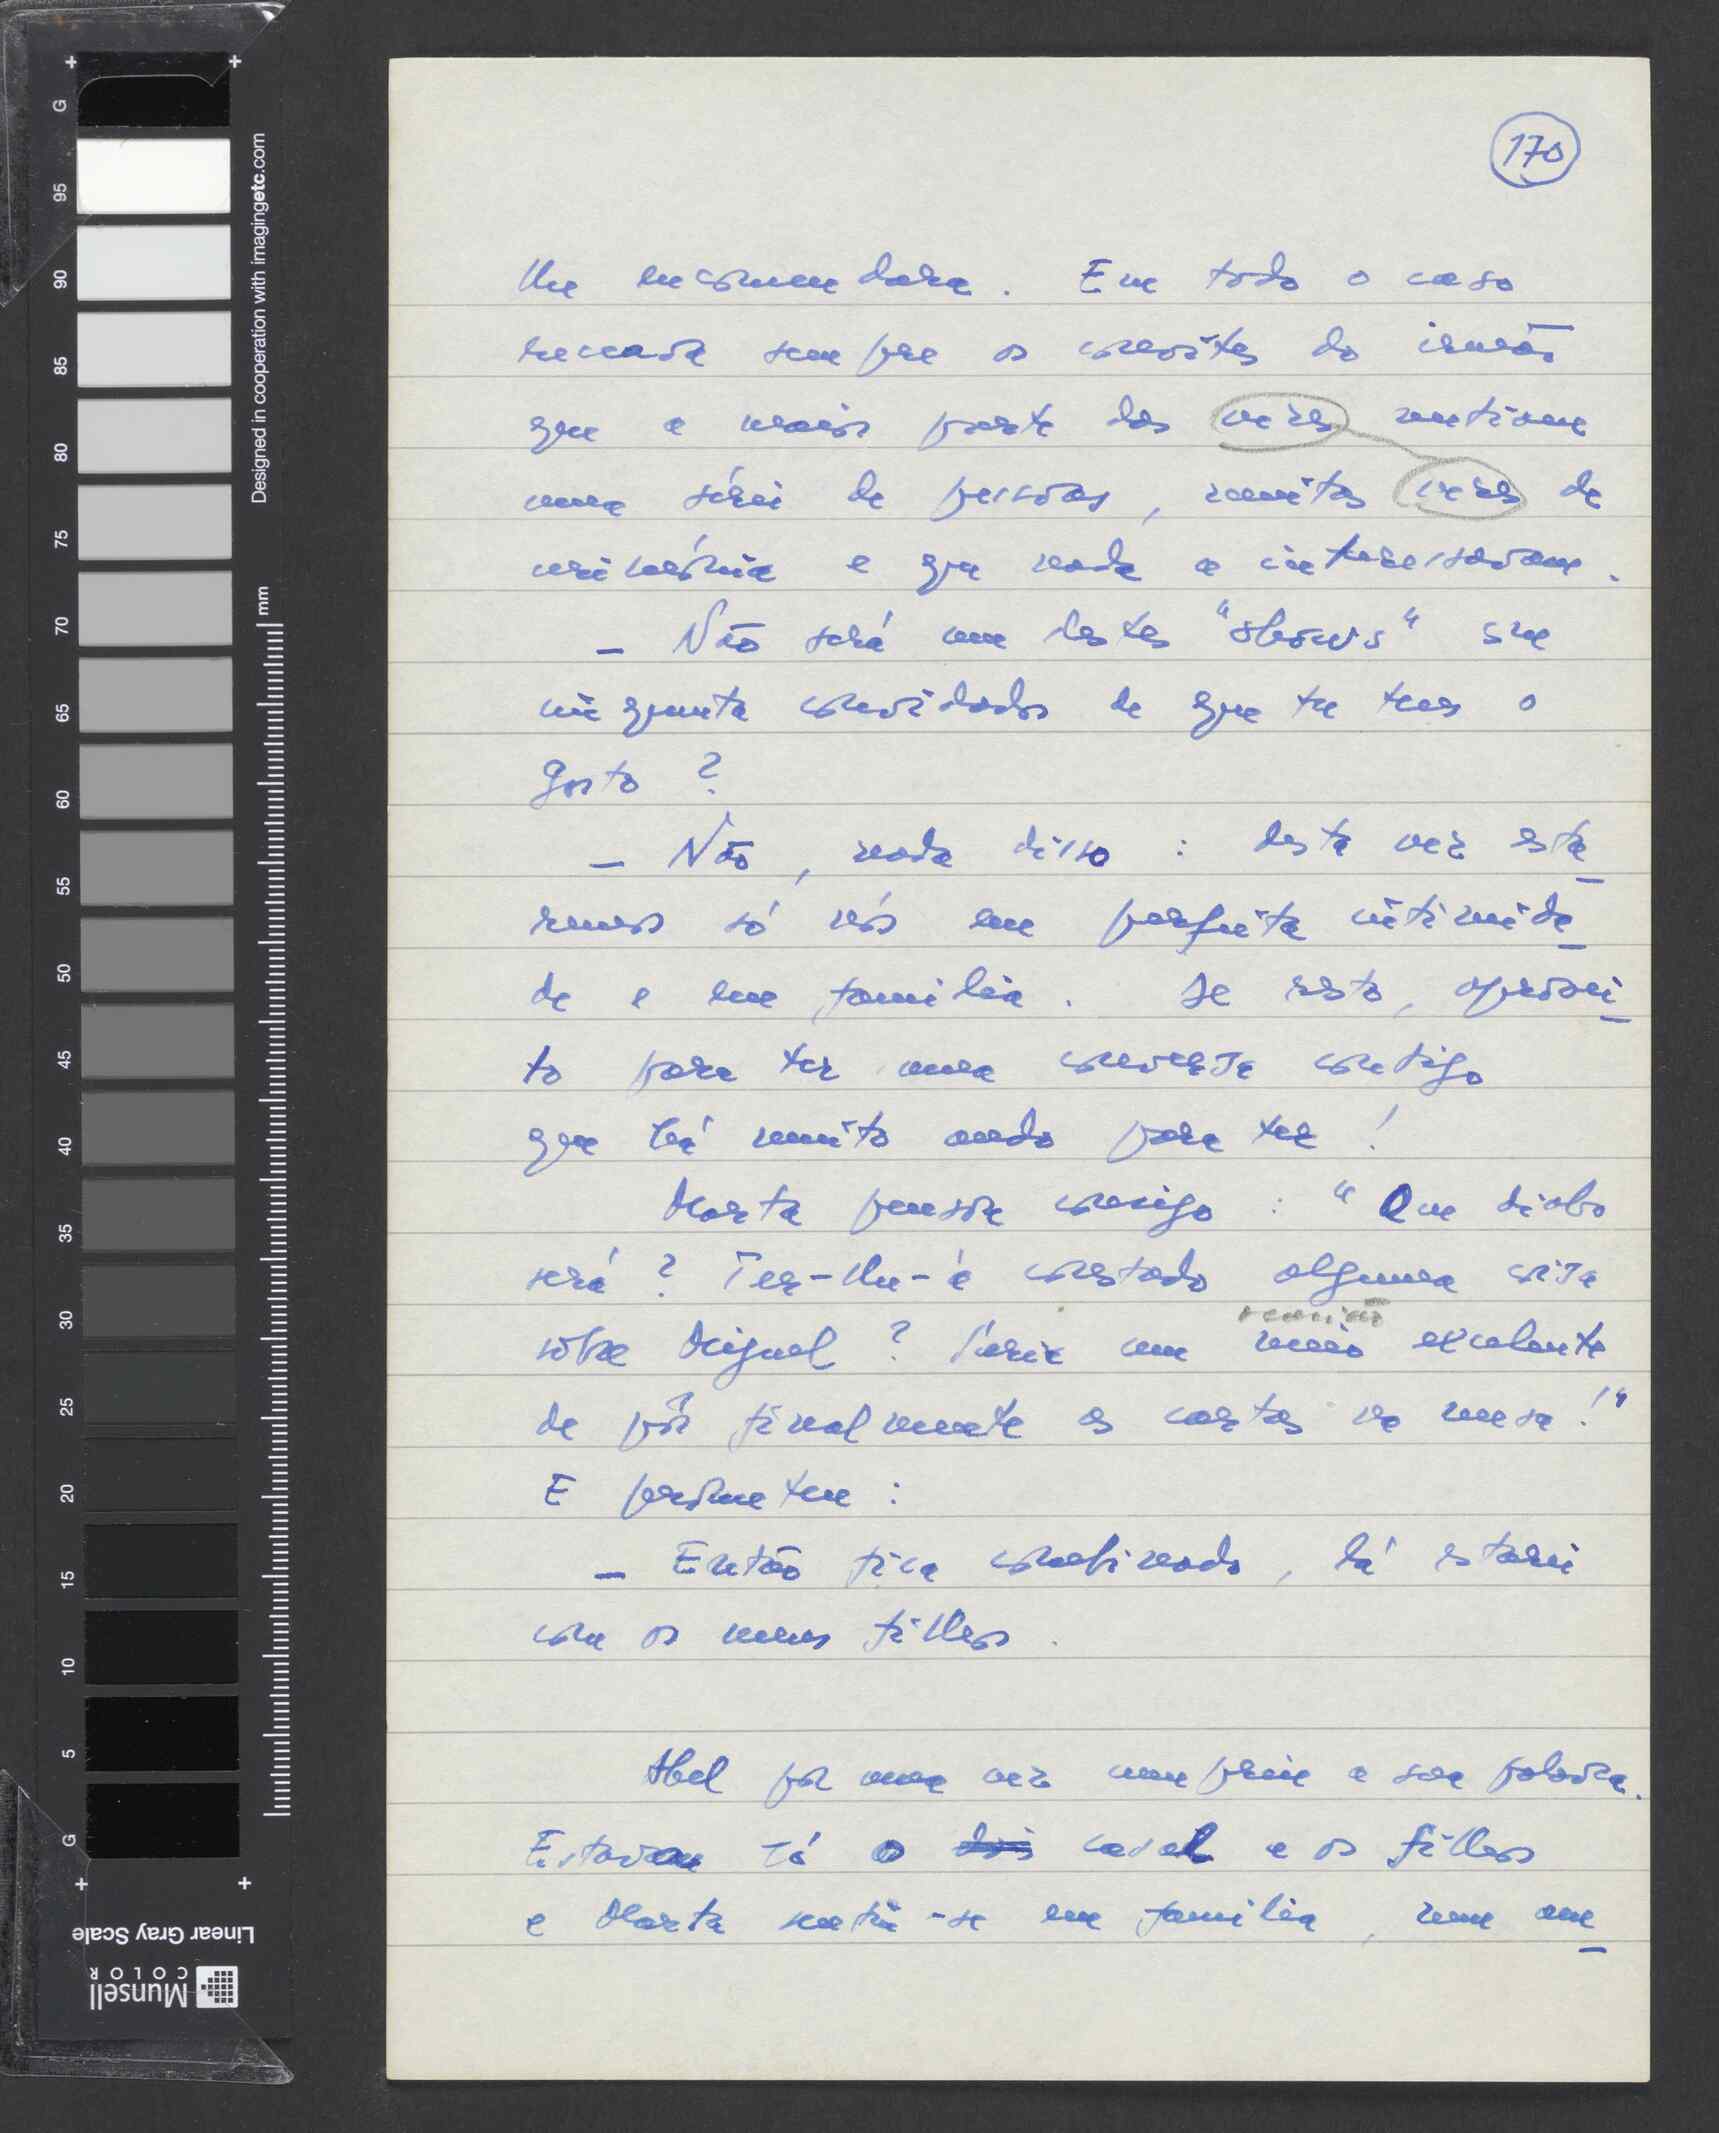 170
lhe encomendara. Em todo o caso
receava sempre os convites do irmão
que a maior parte das vezes metiam
uma série de pessoas, muitas vezes de
cerimónia e que nada a interessavam.
— Não será um destes "shows" com
cinquenta convidados de que tu tens o
gosto?
— Não, nada disso: desta vez esta_
remos só nós em perfeita intimida_
de e em familia. De resto, aprovei_
to para ter uma conversa contigo
que há muito ando para ter!
Marta pensou consigo: "Que diabo
será? Ter-lhe-á constado alguma coisa
reunião
sobre Miguel? Seria um meio excelente
de pôr finalmente as cartas na mesa!"
E prometeu:
— Então fica combinado, lá estarei
com os meus filhos.
Abel por uma vez cumprira a sua palavra.
Estavam só o dois casal e os filhos
e Marta sentia-se em familia, num am_
G
95
90
85
80
75
70
65
60
55
50
45
40
35
30
25
20
15
10
5
G
Designed in cooperation with imagingetc.com
mm
Linear Gray Scale
Munsell
COLOR